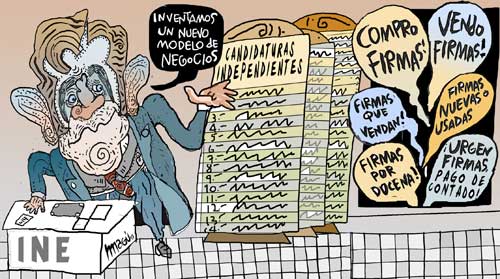 INVENTAMOS
UN NUEVO
MODELO DE
NEGOCIOS
CANDIDATURAS
INDEPENDIENTES
COMPRO
FIRMAS!
VENDO
FIRMAS!
FIRMAS
QUE
VENDAN!
FIRMAS,
NUEVAS O
USADAS
FIRMAS
POR
DOCENA!
¡URGEN
FIRMAS,
PAGO DE
CONTADO!
INE